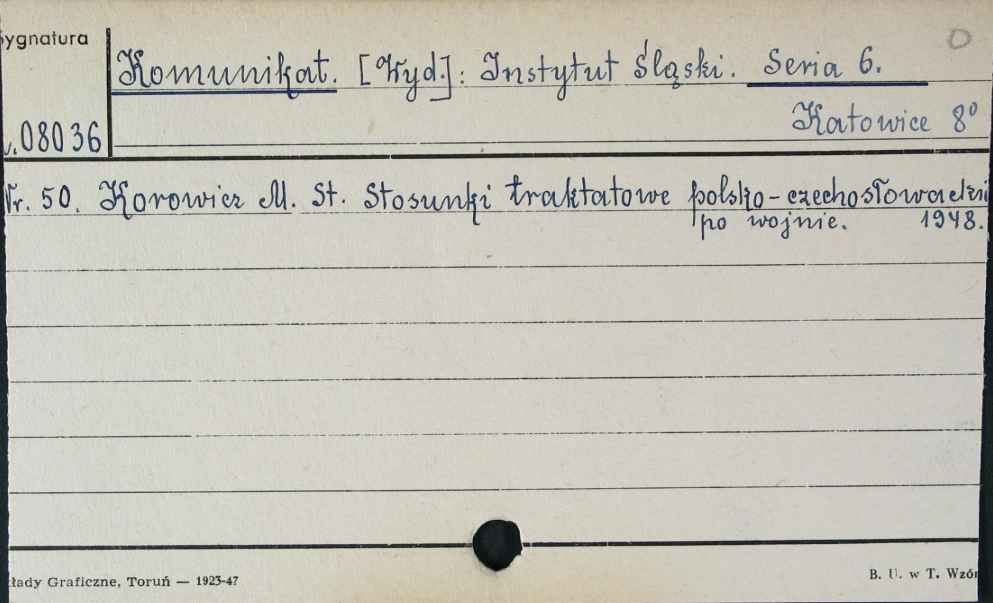 ygnatura
Komunikat. [Wyd.]: Instytut Śląski. Seria 6.
Katowice 8°
08036
Nr. 50. Korowicz M. St. Stosunki traktatowe polsko-czechosłowackie
po wojnie. 1948.
łady Graficzne, Toruń — 1923-47
B. U. w T. Wzór